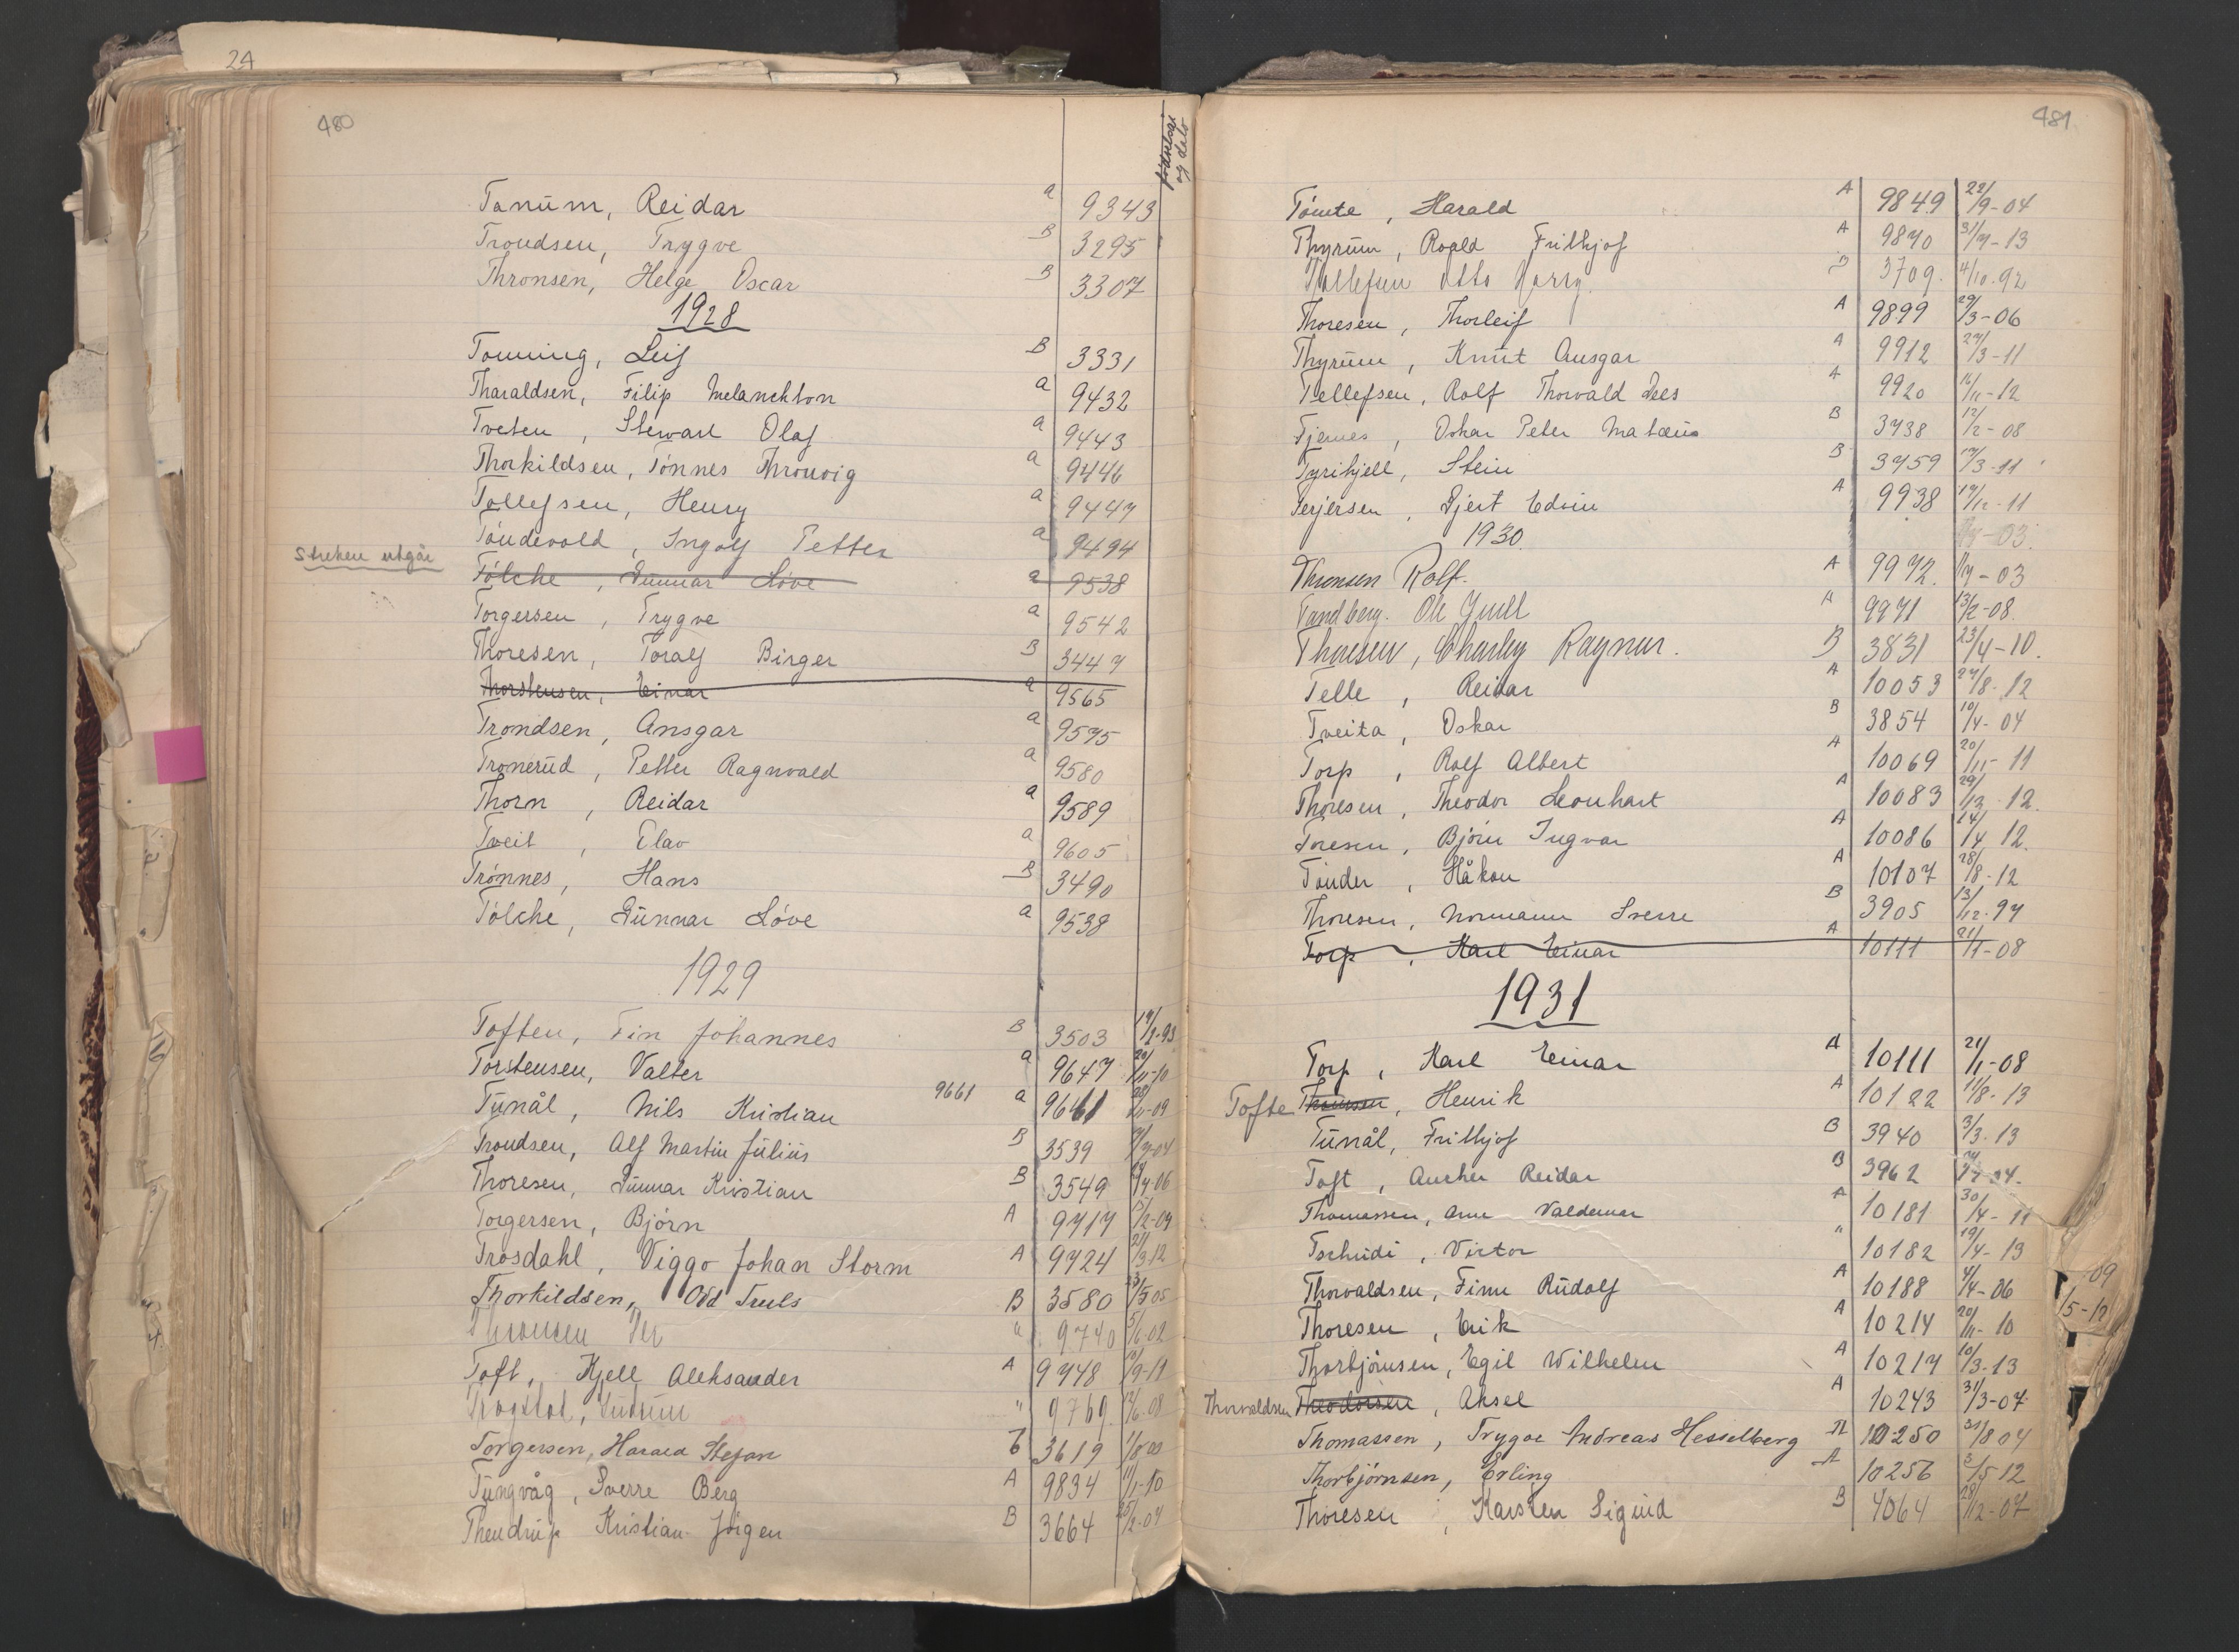 24
480
fødselsår og dato
Tanum, Reidar a 9343
Trondsen, Trygve B 3295
Thronsen, Helge Oscar B 3307
1928
Tonning, Leif B 3331
Tharaldsen, Filip Melanchton a 9432
Tveten, Stewart Olaf a 9443
Thorkildsen, Tønnes Thronvig a 9446
Tollefsen, Henry a 9447
Tøndevold, Ingolf Petter a 9494
streken utgår Tølche, Gunnar Løve a 9538
Torgersen, Trygve a 9542
Thoresen, Toralf Birger B 3447
Thorstensen, Einar a 9565
Trondsen, Ansgar a 9575
Tronerud, Petter Ragnvald a 9580
Thorn, Reidar a 9589
Tveit, Olav a 9605
Trønnes, Hans B 3490
Tølche, Gunnar Løve a 9538
1929
Toften, Fin Johannes B 3503
Torstensen, Valter a 9647
Tunål, Nils Kristian 9661 a 9661
Trondsen, Alf Martin Julius B 3539
Thoresen, Gunnar Kristian B 3549
Torgersen, Bjørn A 9717
Trosdahl, Viggo Johan Storm A 9724 21/3 12
Thorkildsen, Odd Truls B 3580 23/5 05
Thronsen " 9740 5/6 02
Toft, Kjell Aleksander A 9748
Trogstad, " 9769
Torgersen, Harald Stefan b 3619
Tungvåg, Sverre Berg A 9834 11/1-10
Thendrup Kristian Jørgen B 3664 25/2-04
481
Tømte, Harald A 9849 22/9-04
Thyrum, Roald Frithjof A 9870 31/7-13
Tollefsen Otto Harry B 3709 4/10.92
Thoresen, Thorleif A 9899 29/3-06
Thyrum, Knut Ansgar A 9912 27/3-11
Tellefsen, Rolf Thorvald Dees A 9920 16/11-12
Tjernes, Oskar Peter Mateus B 3738 12/2-08
Tyrihjell, Stein B 3759 17/3-11
Terjersen, Gjert Edvin A 9938 17/12-11
1930
Thronsen Rolf. A 9972. 11/7-03
Tandberg. Ole Juell A 9971 13/2-08
Thoresen, Charley Ragnar. B 3831 23/4-10.
Telle, Reidar A 10053 27/8-12
Tveita, Oskar B 3854 10/4-04
Torp, Rolf Albert A 10069 20/11-11
Thoresen, Theodor Leonhart A 10083 29/12.12.
Toresen, Bjørn Ingvar A 10086 14/4 12.
Tønder, Håkon A 10107 28/8-12
Thoresen, Normann Sverre B 3905 13/12.97
Torp, Karl Einar A 10111 21/1-08
1931
Torp, Karl Einar A 10111 21/1-08
Tofte Thomsen, Henrik A 10122 11/8-13
Tunål, Frithjof B 3940 3/3.13
Toft, Ancher Reidar B 3962
Thomassen, Arne Valdemar A 10181 30/4-11
Tschudi, Victor " 10182 19/4-13
Thorvaldsen, Finn Rudolf A 10188 4/4-06
Thoresen, Erik A 10214 20/11-10
Thorbjørnsen, Egil Wilhelm A 10217 10/3-13
Thorvaldsen Theodorsen, Aksel A 10243 31/3-07
Thomassen, Trygve Andreas Hesselberg A 10250 31/8 04
Thorbjørnsen, Erling A 10256 3/5 12
Thoresen, Karsten Sigurd B 4064 28/12-07
09
5-12